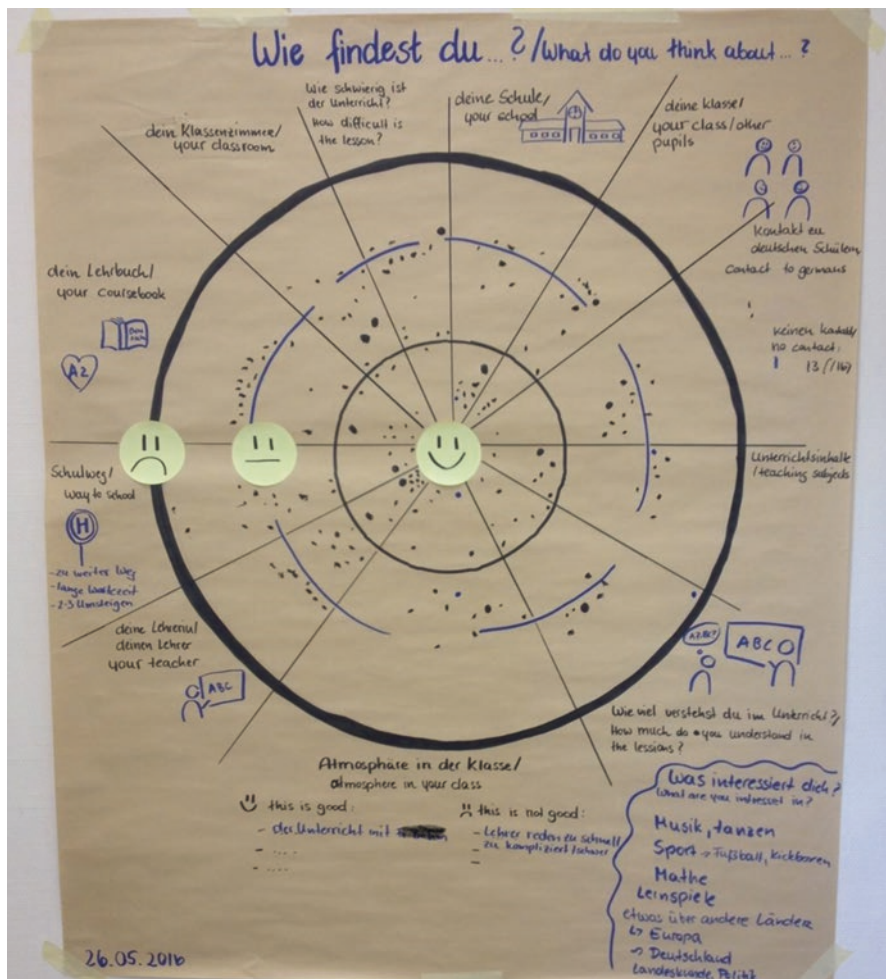 Wie findest du...?/What do you think about...?
Wie schwierig ist
der Unterricht?
How difficult is
the lesson?
deine Schule/
your school
deine Klasse/
your class/other
pupils
dein Klassenzimmer/
your classroom
Kontakt zu
deutschen Schülern
contact to germans
keinen Kontakt/
no contact:
13
dein Lehrbuch/
your coursebook
A2
Schulweg/
way to school
H
- zu weiter Weg
- lange Wartezeit
- 2-3 Umsteigen
Unterrichtsinhalte
/teaching subjects
deine Lehrerin/
deinen Lehrer
your teacher
ABC
ABC
Wie viel verstehst du im Unterricht?/
How much do you understand in
the lessions?
Atmosphäre in der Klasse/
atmosphere in your class
this is good:
- der Unterricht mit
- ....
- ....
this is not good:
- Lehrer reden zu schnell
zu kompliziert/schwer
-
Was interessiert dich?
What are you intresset in?
Musik, tanzen
Sport → Fußball, Kickboxen
Mathe
Lernspiele
etwas über andere Länder
↳ Europa
→ Deutschland
Landeskunde, Politik
26.05.2016